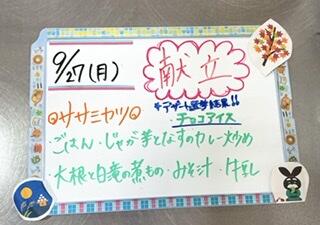 9/27(月)
献立
*デザート選挙結果!!
・チョコアイス
◎ササミカツ◎
・ごはん・じゃが芋となすのカレー炒め
・大根と白竜の煮もの・みそ汁・牛乳